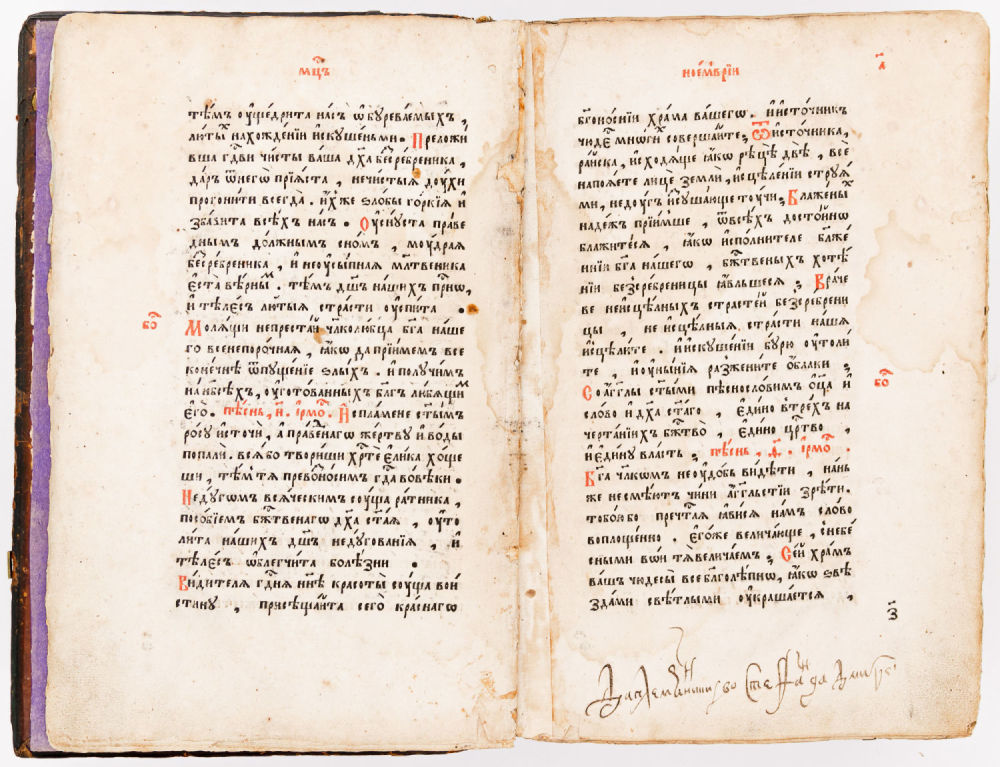 мц҃ъ
тѣмъ ᲂу҆щедрита на́съ ѿ бꙋреваемыхъ,
лю́тыⷯ нахожде́нїи и҆скꙋше́ньми. Преложи́
вша гдⷭ҇ви чи́сты ваша дх҃а бесре́бреника,
да́ръ ѿ негѡ̀ прїѧ́ста, нечи́стыѧ дꙋ́хи
прогони́ти всегда̀. и҆́хже ѕло́бы го́ркїѧ и҆
зба́вита всѣ́хъ на́съ. Оу҆снꙋ́ста пра́ве
днымъ до́лжнымъ сно́мъ, мо́ꙋдраѧ
бесре́бреника, и҆ неоу҆сы́пнаѧ мл҃твеника
є҆ста̀ вѣ́рныⷨ. тѣ́мъ дш҃ъ на́шихъ при́сно,
и҆ тѣле́съ лю́тыѧ стра́сти оу҆спи́та.
бо҃
Молѧ́щи непреста́й чл҃колю́бца бг҃а на́ше
го всенепоро́чнаѧ, ꙗ҆́кѡ да прїи́мемъ все
коне́чнѣ ѿпꙋще́нїе ѕлы́хъ. и҆ полꙋчи́мъ
на нб҃сѣ́хъ, оу҆гото́ванныхъ бл҃гъ лю́бѧщиⷨ
є҆го̀. пѣ́снь, и҃. і҆рмо́съ. И҆спла́мене ст҃ы́мъ
ро́сꙋ и҆сточѝ, а҆ пра́веднагѡ же́ртвꙋ и҆ во́ды
попалѝ. всѧ̑ бо твори́ши хрⷭ҇тѐ є҆ли́ка хо́ще
ши, тѣ́мъ тѧ̀ превоно́симъ гдⷭ҇а во вѣ́ки.
Недꙋ́гѡмъ всѧ́ческимъ сꙋ́ща ра́тника,
посо́бїемъ бжⷭ҇твенагѡ дх҃а ст҃а́ѧ, оу҆то
ли́та на́шихъ дш҃ъ недꙋгова́нїѧ, и҆
тѣле́съ ѡ҆блегчи́та болѣ́зни.
Види́телѧ гдⷭ҇нѧ ны́нѣ красоты̀ сꙋ́ща во и҆́
станꙋ, присѣща́йта сего̀ кра́снагѡ
ное́мврїи
а҃
бг҃оно́снїи хра́ма ва́шегѡ. и҆ и҆сто́чникъ
чꙋде́съ мно́ги соверша́йте, Ѿ и҆сто́чника,
ра́йска, и҆схо́дѧще ꙗ҆́кѡ рѣ́цѣ двѣ̀, все
напоѧ́ете лицѐ землѝ, и҆сцѣле́нїи стрꙋѧ́
ми, недꙋ́гъ и҆сꙋша́юще тꙋ́чи, Блаже́ныⷯ
наде́жъ прїи́мше, ѿ всѣ́хъ досто́йнѡ
блажи́тесѧ, ꙗ҆́кѡ и҆сполни́теле блж҃е
нїи бг҃а на́шегѡ, бжⷭ҇твеныхъ хотѣ́
нїи безсре́бреницы ꙗ҆́вльшесѧ, Вра́че
ве неисцѣ́лныхъ страсте́й безсре́брени
цы, неисцѣ́лныѧ, стра́сти на́шѧ
и҆сцѣлѝте. и҆ и҆скꙋше́нїи бꙋ́рю оу҆толи́
те, и҆ оу҆ны́нїѧ разжени́те о҆́блаки,
бо҃
Со а҆́гг҃лы ст҃ы́ми пѣснослови́мъ о҆ц҃а̀ и҆
сло́во и҆ дх҃а ст҃а́го, є҆ди́но в̾ тре́хъ на
черта́нїихъ бжⷭ҇тво̀, є҆ди́но црⷭ҇тво,
и҆ є҆ди́нꙋ вла́сть, пѣ́снь, ѳ҃. і҆рмо́съ.
Бг҃а чл҃кѡмъ неꙋдо́бь ви́дѣти, на́нь
же не смѣ́ютъ чи́ни а҆́гг҃льстїи зрѣ́ти.
тобо́ю бо пречⷭ҇таѧ ꙗ҆ви́сѧ на́мъ сло́во
воплоще́нно. є҆го́же велича́юще, с̾ небе́
сными во́и тѧ̀ велича́емъ, Се́й хра́мъ
ва́шъ чꙋдесы̀ всебл҃голѣ́пнѡ, ꙗ҆́кѡ ѕвѣ
зда́ми свѣ́тлыми оу҆краша́етсѧ,
з҃